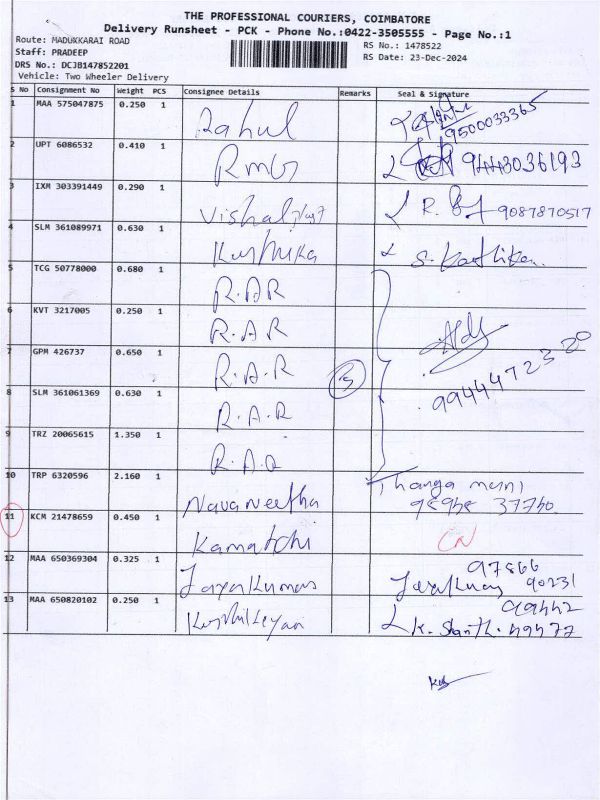 THE PROFESSIONAL COURIERS, COIMBATORE
Delivery Runsheet - PCK - Phone No.:0422-3505555 - Page No.:1
Route: MADUKKARAI ROAD
RS No.: 1478522
Staff: PRADEEP
RS Date: 23-Dec-2024
DRS No.: DCJB147852201
Vehicle: Two Wheeler Delivery
S No Consignment No Weight PCS Consignee Details Remarks Seal & Signature
1 MAA 575047875 0.250 1 Rahul 9500033365
2 UPT 6086532 0.410 1 RMG 94443036193
3 IXM 303391449 0.290 1 Vishal R. 9087870517
4 SLM 361089971 0.630 1 S. Karthika
5 TCG 50778000 0.680 1 R.A.R
6 KVT 3217005 0.250 1 R.A.R
7 GPM 426737 0.650 1 R.A.R 5 9944472320
8 SLM 361061369 0.630 1 R.A.R
9 TRZ 20065615 1.350 1 R.A.R
10 TRP 6320596 2.160 1 Navaneetha Thanga mani
37740
11 KCM 21478659 0.450 1 Kamatchi CN
12 MAA 650369304 0.325 1 Jayakumar 97866
Jayakumar 90231
13 MAA 650820102 0.250 1 99442
K. Shanthi 49477